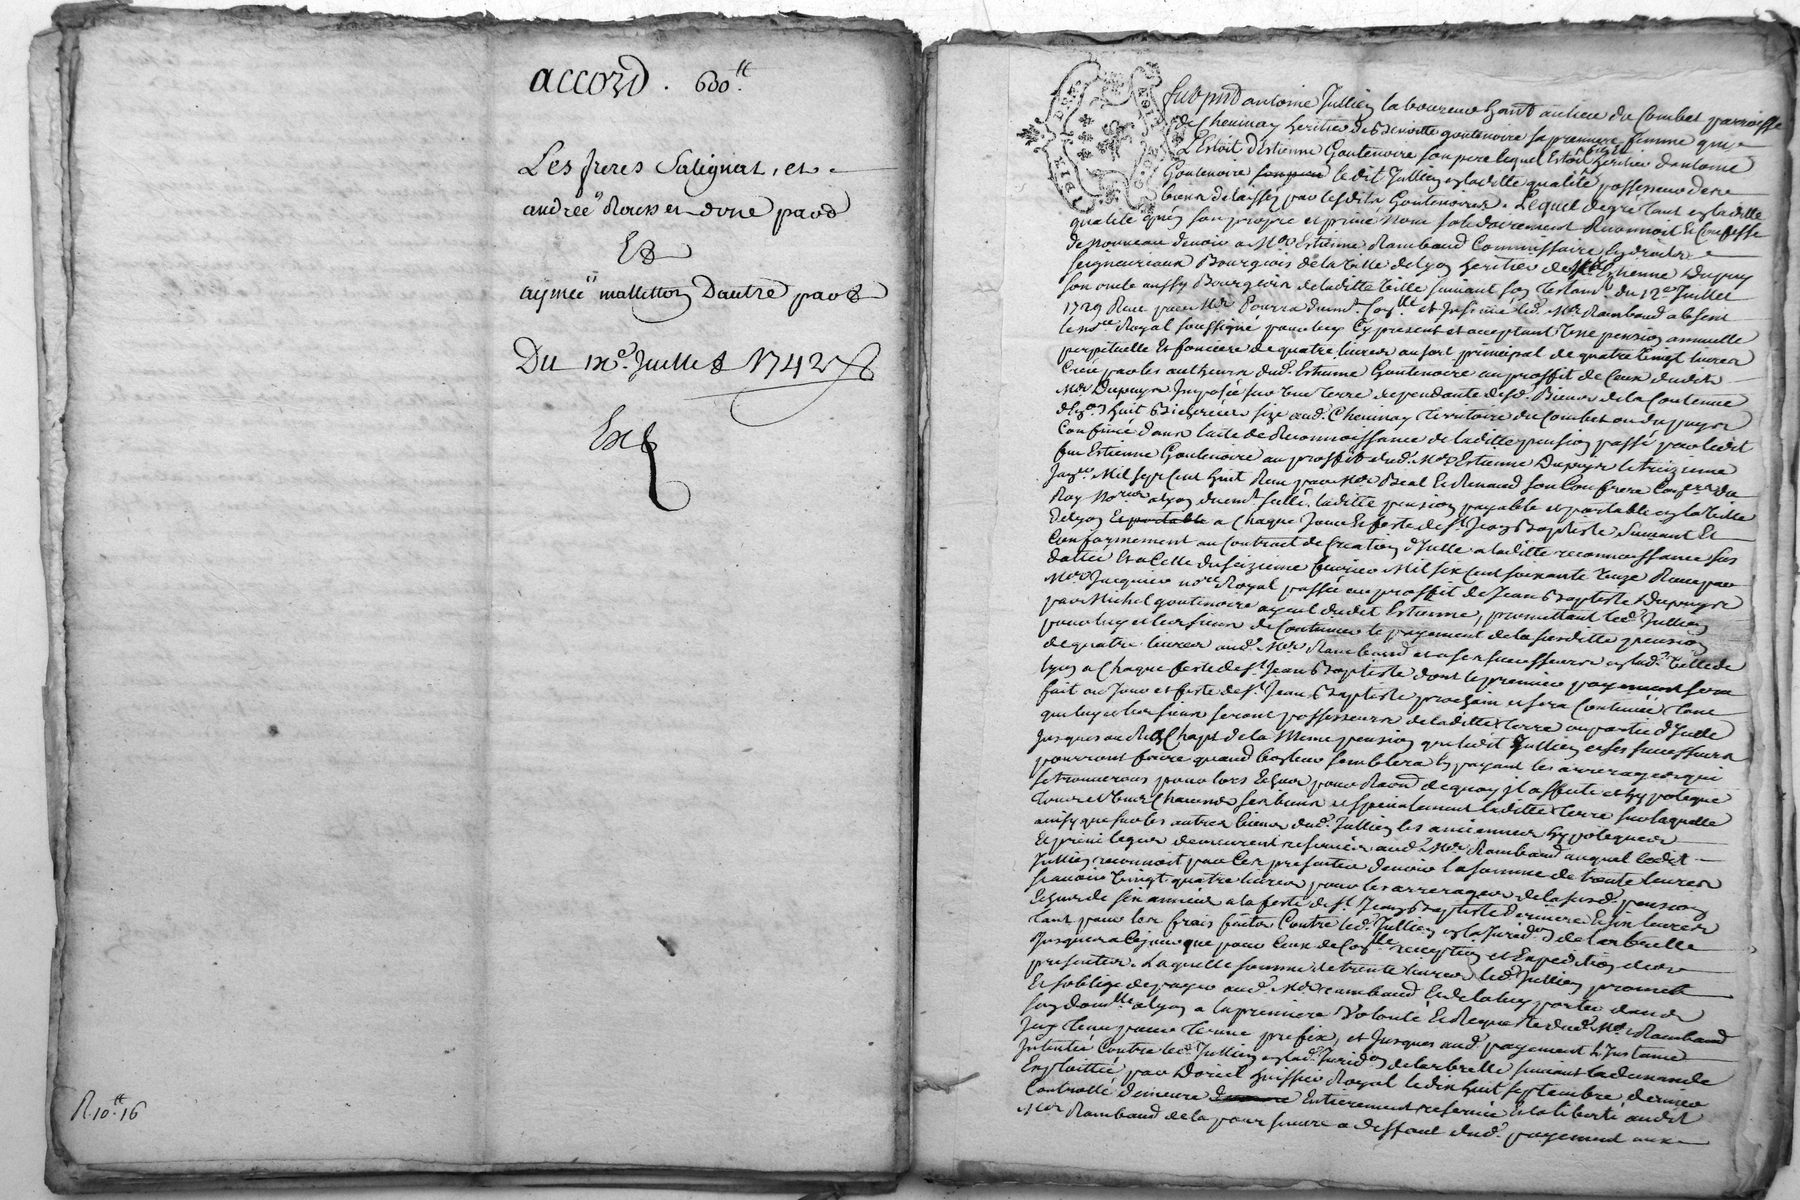 accord. 600ᵗᵗ
Les freres Salignat, et
andrée Rousset done part
Et
aymée malletton Dautre part
Du 12e. Juillet 1742
Exp
R. 10ᵗᵗ. 16
fut pnt antoine Jullien laboureur hant au lieu du Combet parroisse
de Chevinay heritier de Benoitte goutenoire sa premiere femme qui
L'Estoit d'Estienne Goutenoire son pere lequel Estoit heritier dantoine
Goutenoire ledit Jullien en laditte qualité possesseur de
biens delaissés par lesdits Goutenoires. Lequel degré tant en laditte
qualité quen son propre et privé nom solidairement Reconnoit Et Confesse
de nouveau devoir a Mr Estienne Rambaud Commissaire en droits
seigneuriaux Bourgeois de la Ville de Lyon heritier de Estienne Dupuy
son oncle aussy Bourgeois de laditte Ville suivant son Testamt. du 12e Juillet
1729 Receu par Mr Pourra
Royal soussigné pour luy Cy present et acceptant Une pension annuelle
perpetuelle Et fonciere de quatre livres au sort principal de quatre Vingt livres
Créé par les autheurs dud. Estienne Goutenoire au proffit de Ceux dudit
Mr Dupuys Imposée sur Une Terre dependante desd. Biens de la Contenue
huit Bicherées size aud. Chevinay Territoire du Combet ou dupuys
Confiné dans lacte de Reconnoissance de laditte pension passé par ledit
feu Estienne Goutenoire au proffit dud. Mr Estienne Dupuys le treizieme
Mil sept Cent huit Receu par Mr Beal Et Renaud son Confrere Coners du
Roy Nores a Lyon laditte pension payable et portable en la Ville
de Lyon Et portable a Chaque Jour Et feste de St. Jean Baptiste suivant Et
Conformement au Contract de Creation d'Icelle a laditte reconnoissance sus
dattée Et a Celle du seizieme fevrier Mil six Cent soixante Unze Receue par
Mr Jacquier nore Royal passée au proffit de Jean Baptiste Dupuys
par Michel goutenoire ayeul dudit Estienne, promettant led. Jullien
pour luy et les siens de Continuer le payement de la susditte pension
de quatre livres aud. Mr Rambaud et a ses successeurs en lad. Ville de
Lyon a Chaque feste de St. Jean Baptiste dont le premier payement sera
fait au Jour et feste de St. Jean Baptiste prochain et sera Continuée tant
que luy et les siens seront possesseurs de laditte terre ou partie d'Icelle
Jusques au Rachapt de la Meme pension que ledit Jullien et ses successeurs
pourront faire quand bon leur semblera En payant les arrerages qui
se trouveront pour lors Echus pour Raon de quoy Il affecte et hypoteque
tous et Uns Chacuns ses biens et specialement laditte terre sur laquelle
ainsy que sur les autres biens dud. Jullien les anciennes hypoteques
Et privileges demeurent reservés aud. Mr Rambaud auquel ledit
Jullien reconnoit par Ces presentes devoir la somme de trente livres
scavoir Vingt quatre livres pour les arrerages de la susd. pension
Echus de six années a la feste de St. Jean Baptiste derniere Et six livres
tant pour les frais faits Contre led. Jullien en la Juridon de larbresle
Jusques a Ce jour que pour Ceux de reception et Expedition des
presentes. Laquelle somme de trente livres led. Jullien promet
Et soblige de payer aud. Mr Rambaud Et de la luy porter dans
son domlle a Lyon a la premiere Volonté Et Requeste dud. Mr Rambaud
pour terme prefix, et Jusques aud. payement L'Instance
Intentée Contre led. Jullien en lad. Juridon de larbresle suivant la demande
Exploittée par Doriel huissier Royal le dix huit septembre dernier
Controllé demeure Entierement reservée Et la liberté audit
Mr Rambaud de la poursuivre a deffaut dud. payement aux